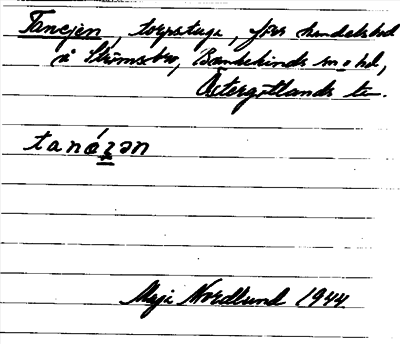 Tancjen, torpstuga, förr handelsbod
i Strömsbro, Bankekinds sn o hd,
Östergötlands län.
tanǿʓən
Maja Nordlund 1944